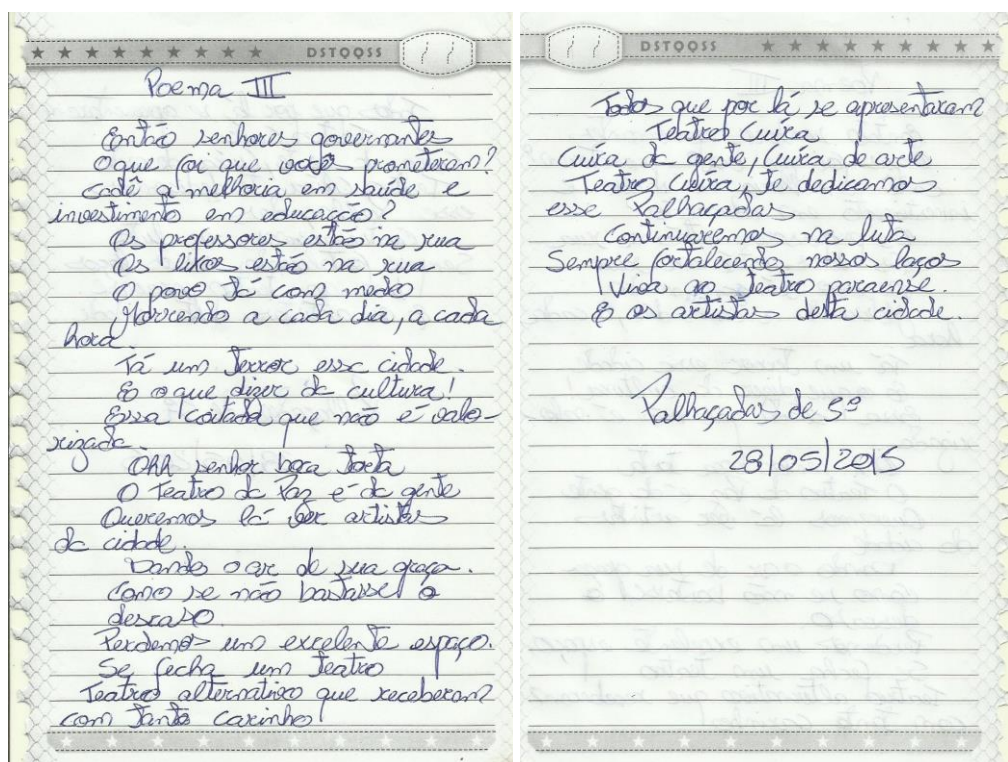 DSTQQSS
Poema III
Então senhores governantes
O que foi que vocês prometeram?
Cadê a melhoria em saúde e
investimento em educação?
Os professores estão na rua
Os lixos estão na rua
O povo tá com medo
Morrendo a cada dia, a cada
hora.
Tá um terror essa cidade.
E o que dizer da cultura!
Essa coitada que não é valo-
rizada.
Ohh senhor boca torta
O Teatro da Paz é da gente
Queremos lá ver artistas
da cidade.
Dando o ar de sua graça.
Como se não bastasse o
descaso
Perdemos um excelente espaço.
Se fecha um teatro
Teatro alternativo que receberam
com tanto carinho
DSTQQSS
Todos que por lá se apresentaram
Teatro Cuíra
Cuíra da gente, Cuíra de arte
Teatro Cuíra, te dedicamos
esse Palhaçadas
Continuaremos na luta
Sempre fortalecendo nossos laços
Viva ao teatro paraense.
E os artistas desta cidade.
Palhaçadas de 5ª
28/05/2015